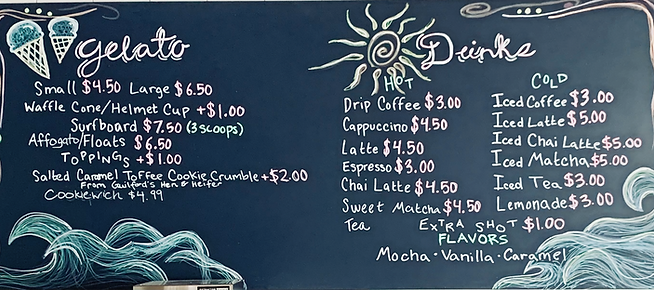 gelato
Small $4.50 Large $6.50
Waffle Cone/Helmet Cup +$1.00
Surfboard $7.50 (3 scoops)
Affogato/Floats $6.50
TOPPINGS +$1.00
Salted Caramel Toffee Cookie Crumble +$2.00
From Guilford's Hen & Heifer
Cookiewich $4.99
Drinks
HOT
Drip Coffee $3.00
Cappuccino $4.50
Latte $4.50
Espresso $3.00
Chai Latte $4.50
Sweet Matcha $4.50
Tea
COLD
Iced Coffee $3.00
Iced Latte $5.00
Iced Chai Latte $5.00
Iced Matcha $5.00
Iced Tea $3.00
Lemonade $3.00
EXTRA SHOT $1.00
FLAVORS
Mocha · Vanilla · Caramel